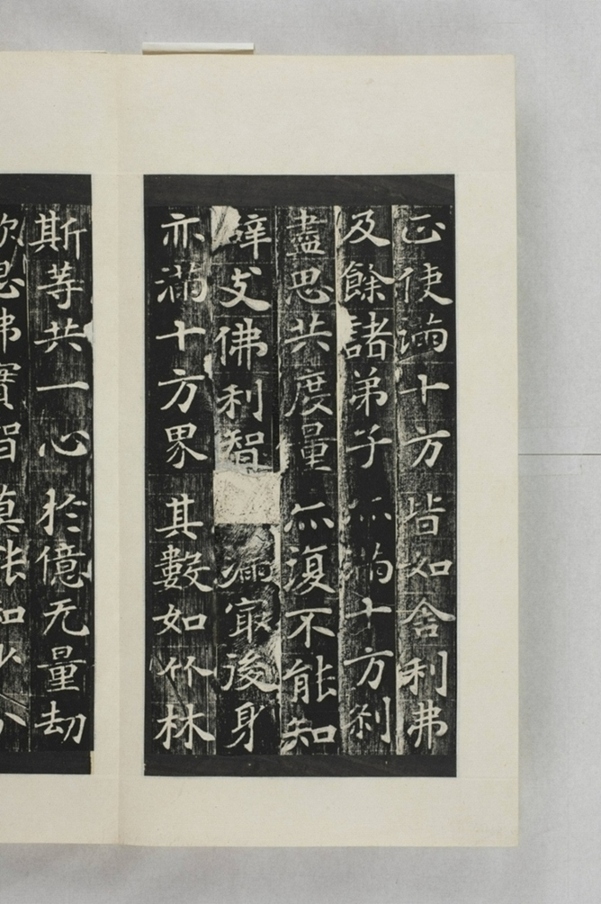 正使滿十方皆如舍利弗
及餘諸弟子亦滿十方刹
盡思共度量亦復不能知
辟支佛利智漏㝡後身
亦滿十方界其數如竹林
斯等共一心於億无量劫
欲思佛實智莫能知少分